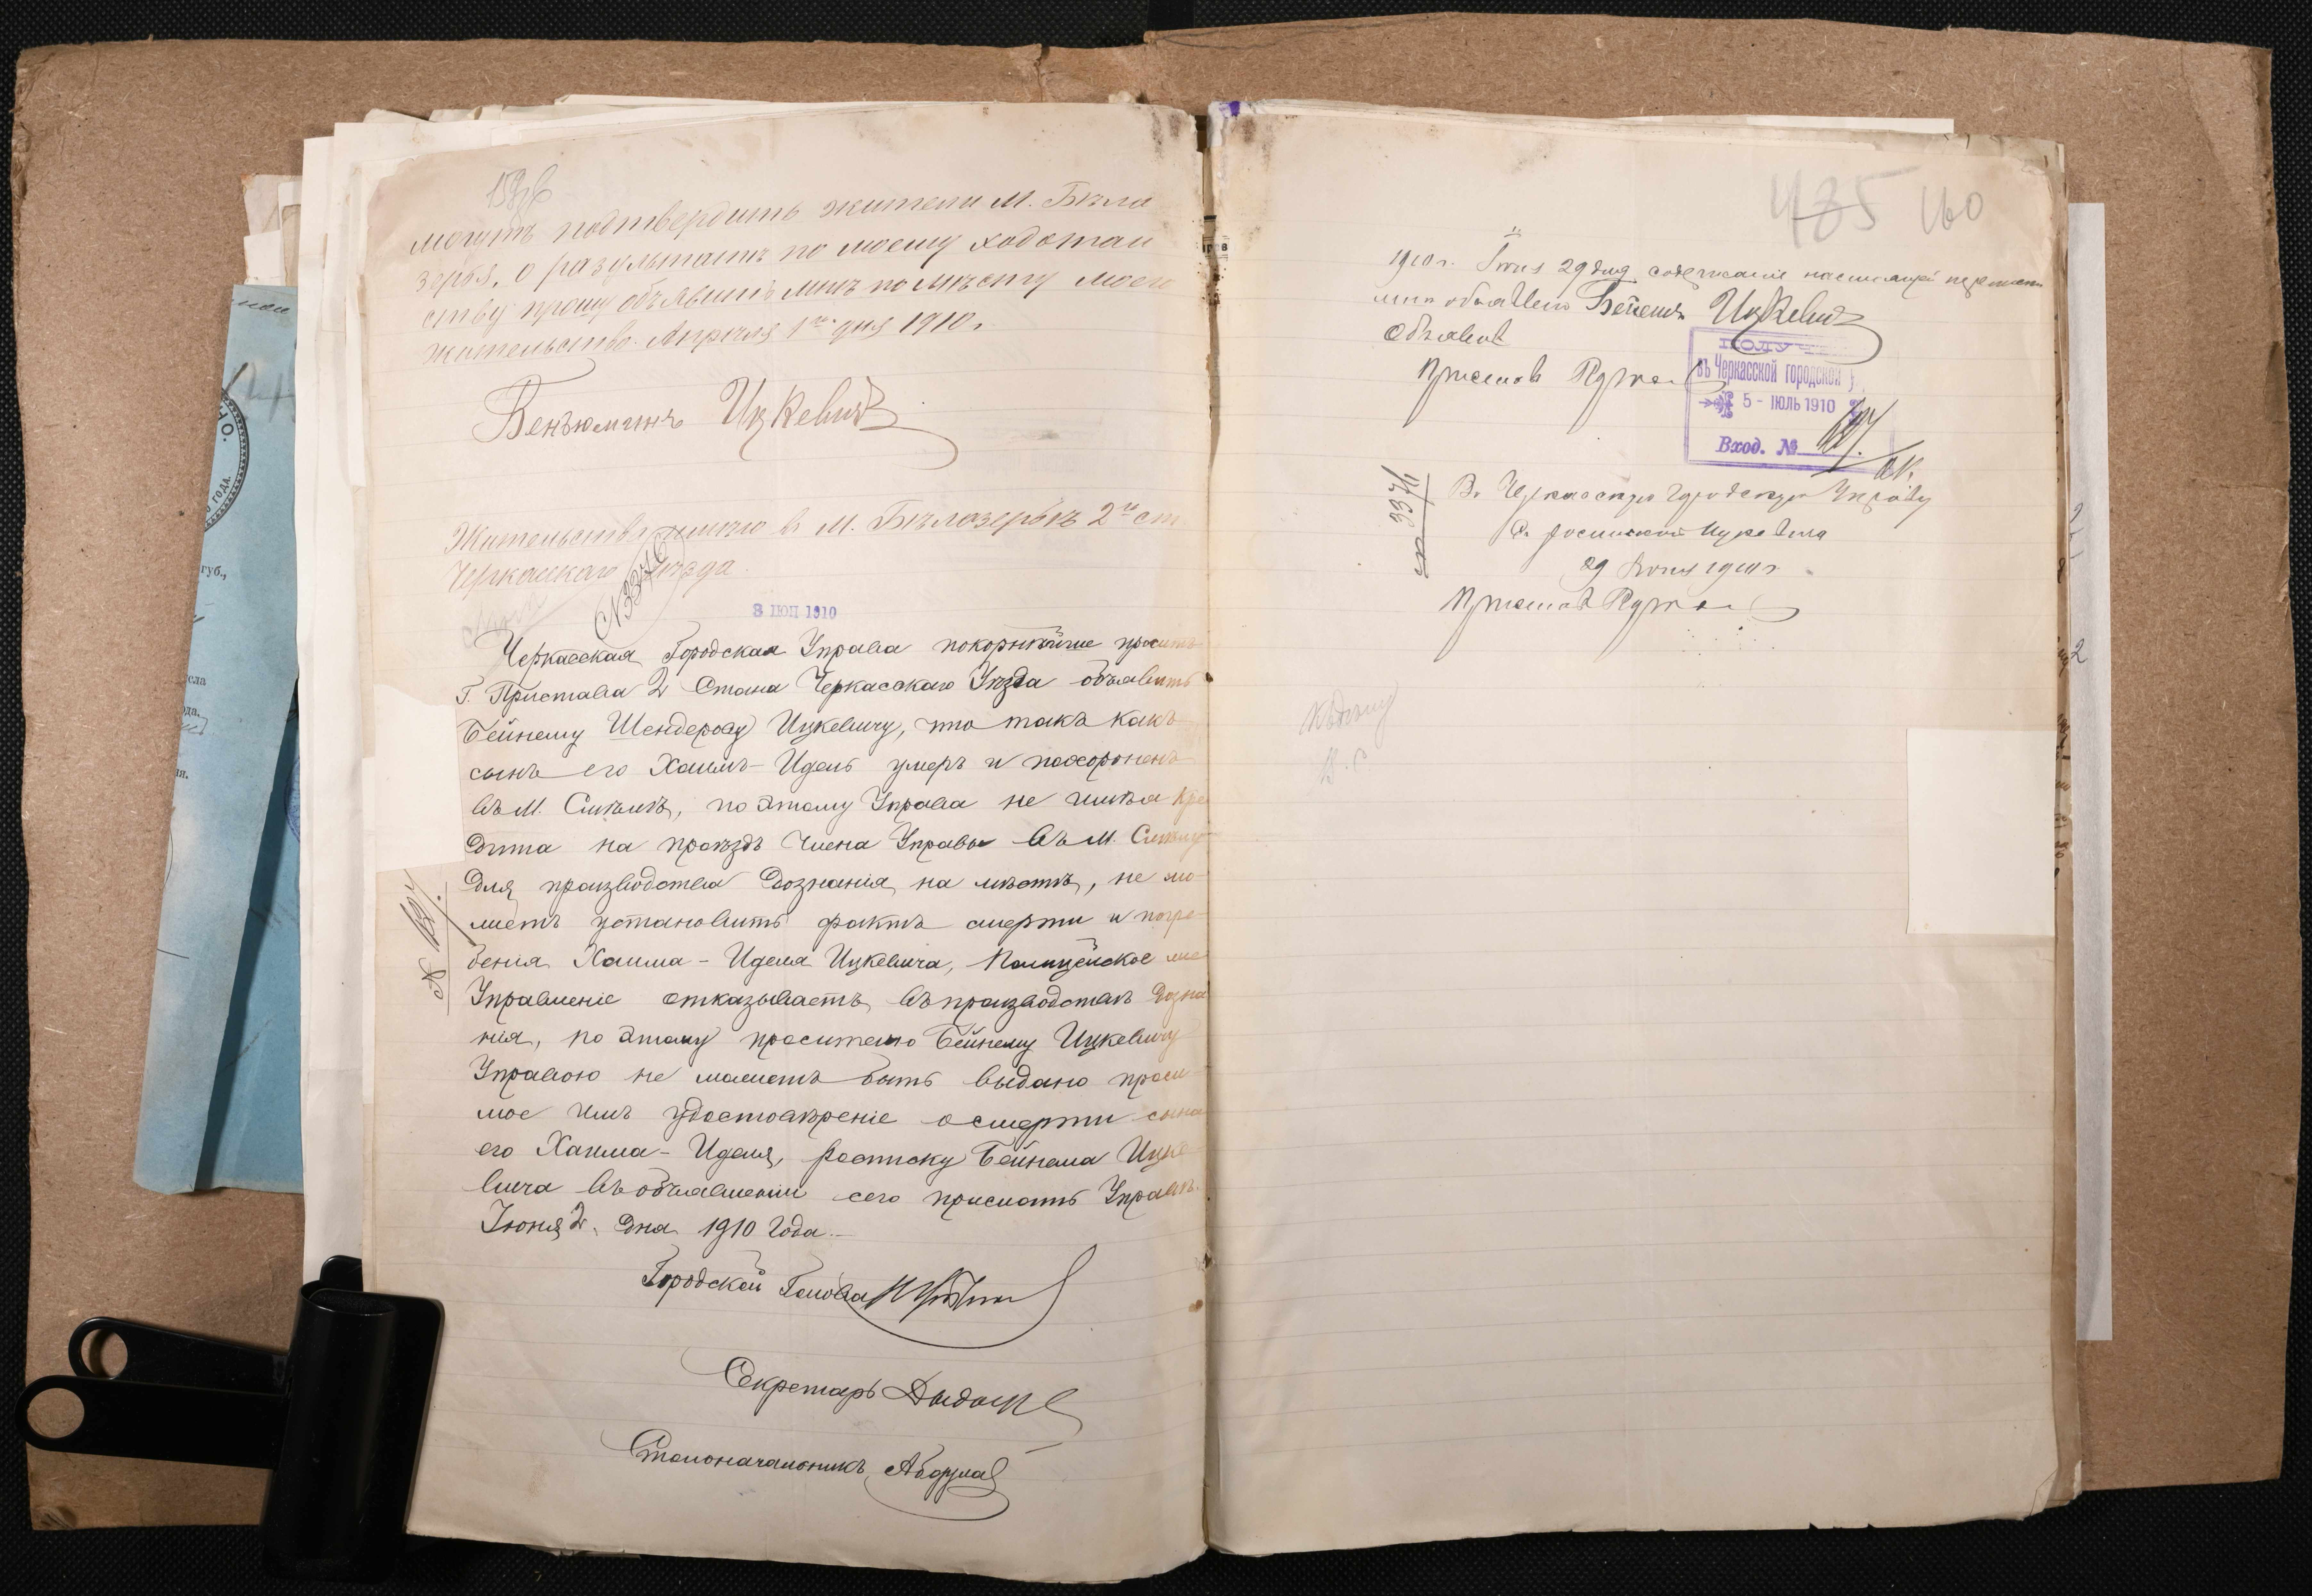 159об
могутъ подтвердить жители М. Бѣло
зерья, о результатѣ по моему ходотай
ству прошу объявить мнѣ по мѣсту моего
жительства. Апрѣля 1го дня 1910 г.
Беньюминъ Ицкевичъ
Жительство имѣю в М. Бѣлозерьѣ 2го ст.
Черкасскаго уѣзда.
N 3376
8 ІЮН 1910
Черкасская Городская Управа покорнѣйше проситъ
Г. Пристава 2 Стана Черкасскаго Уѣзда объявить
Бейнему Шендерову Ицкевичу, что такъ какъ
сынъ его Хаимъ-Идель умеръ и похороненъ
въ М. Смѣлѣ, по этому Управа не имѣя кре
дита на проѣздъ Члена Управы въ М. Смѣлу
для производства дознанія на мѣстѣ, не мо
жетъ установить фактъ смерти и погре-
бенія Хаима-Иделя Ицкевича, Полицейское же
Управленіе отказываетъ въ производствѣ дозна
нія, по этому просителю Бейнему Ицкевичу
Управою не можетъ быть выдано проси-
мое имъ удостовѣреніе о смерти сына
его Хаима-Иделя, росписку Бейнема Ицке
вича въ объявленіи сего прислать Управѣ.
Іюня 2 дня 1910 года.
Городской Голова
Секретарь
Столоначальникъ
435 160
1910 г. Іюня 29 дня содержаніе настоящей переписки
мнѣ объявлено Бейнемъ Ицкевичъ
Объявилъ
Приставъ
ПОЛУЧ
въ Черкасской городской У
5 - ІЮЛЬ 1910
Вход. №
№ 3371
В Черкасскую Городскую Управу
С роспиской Ицкевича
29 Іюня 1910 г.
Приставъ
Къ дѣлу
губ.,
ГОДА.